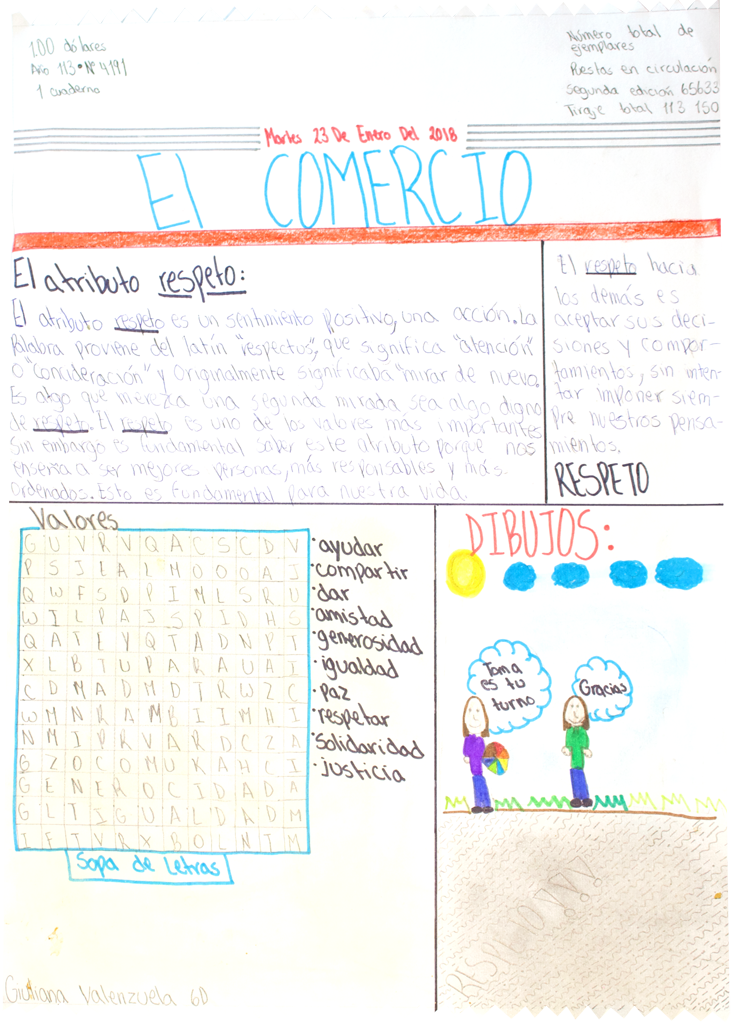 100 dólares
Año 113 • Nº 4191
1 cuaderno
Número total de
ejemplares
Restas en circulación
segunda edición 65633
Tiraje total 113 150
Martes 23 De Enero Del 2018
El COMERCIO
El atributo respeto:
El atributo respeto es un sentimiento positivo, una acción. La
Palabra proviene del latín "respectus", que significa "atención"
O "Concideración" y Originalmente significaba "mirar de nuevo.
Es algo que merezca una segunda mirada, sea algo digno
de respeto. El respeto es uno de los valores más importantes
Sin embargo es fundamental saber este atributo porque nos
enseña a ser mejores personas, más responsables y más
Ordenados. Esto es fundamental para nuestra vida.
El respeto hacia
los demás es
aceptar sus deci-
siones y compor-
tamientos, sin inten-
tar imponer siem-
pre nuestros pensa-
mientos.
RESPETO
Valores
G U V R V Q A C S C D V
P S J L A L M O O O A J
Q W F S D P I M L S R U
W I L P A J S P I D H S
Q A T L Y Q T A D N P T
X L B T U P A R A U A I
C D M A D M D T R W Z C
W M N R A M B I I M H I
N M I P R V A R D C Z A
G Z O C O M U K A H C I
G E N E R O C I D A D A
G L T I G U A L D A D M
L F T V R X B O L N I M
Sopa de Letras
• ayudar
• compartir
• dar
• amistad
• generosidad
• igualdad
• paz
• respetar
• solidaridad
• justicia
DIBUJOS:
Toma
es tu
turno
Gracias
RESPETO!!!
Giuliana Valenzuela 6D